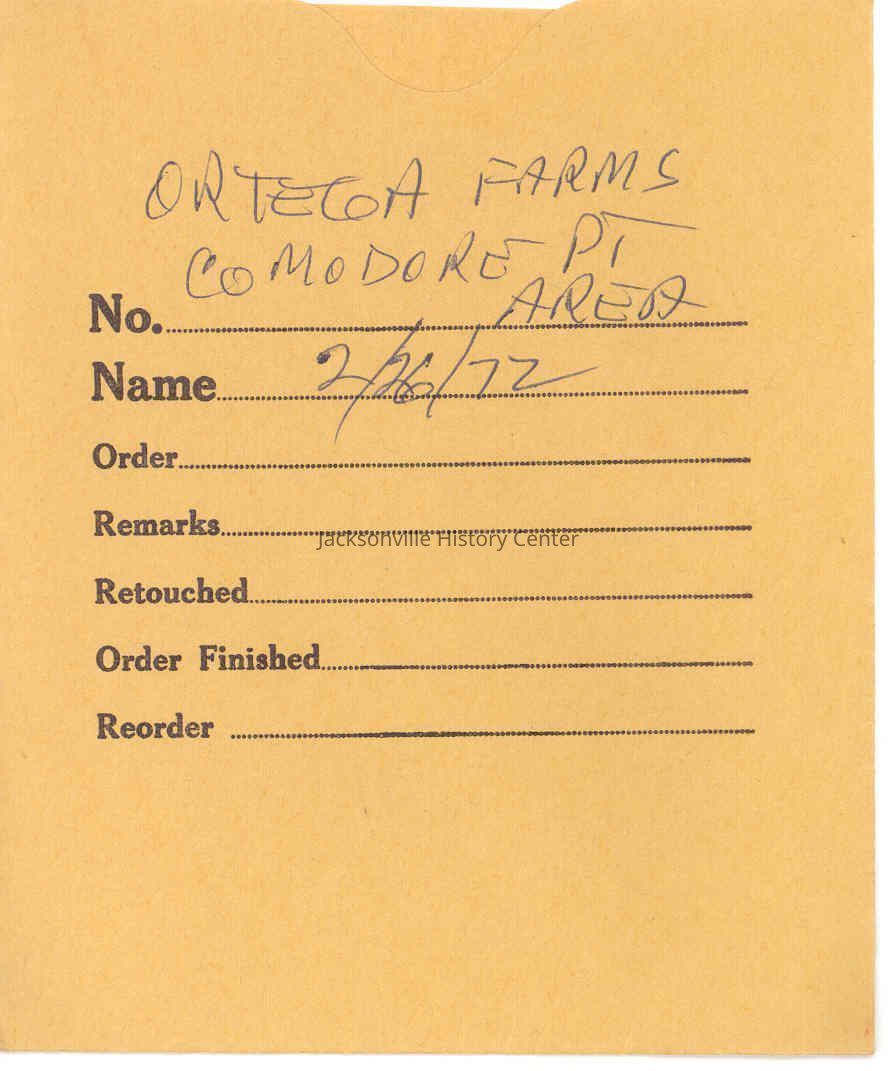 ORTEGA FARMS
COMODORE PT
AREA
No.
2/26/72
Name
Order
Remarks
Jacksonville History Center
Retouched
Order Finished
Reorder